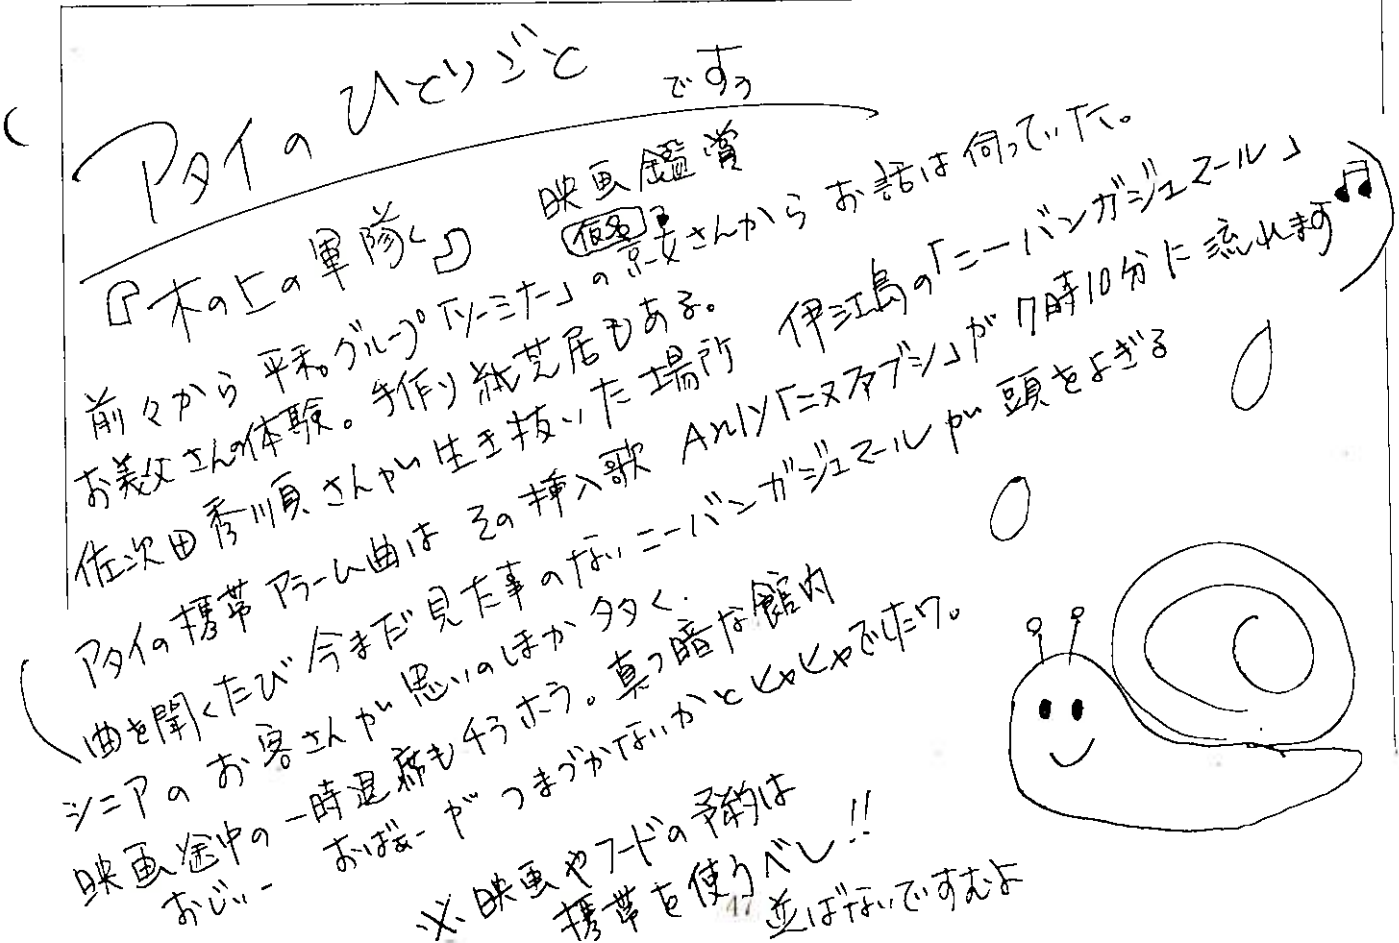 アタイのひとりごと ですぅ
『木の上の軍隊く』 映画鑑賞
前々から 平和グループ「ツーミナー」の京女さんから お話は伺っていた。
仮名
お義父さんの体験。手作り紙芝居もある。
佐次田秀順さんが 生き抜いた場所 伊江島の「ニーバンガジュマール」
アタイの携帯アラーム曲は その挿入歌 Anly「ニヌファブシ」が 7時10分に流れます♫
曲を聞くたび 今まだ見た事のないニーバンガジュマールが 頭をよぎる
シニアの お客さんが 思いのほか 多く.
映画途中の一時退席もチラホラ。真っ暗な館内
おじぃー おばぁーが つまづかないかとヒヤヒヤでしたワ。
※映画やフードの予約は
携帯を使うベし!!
並ばないですむよ
47